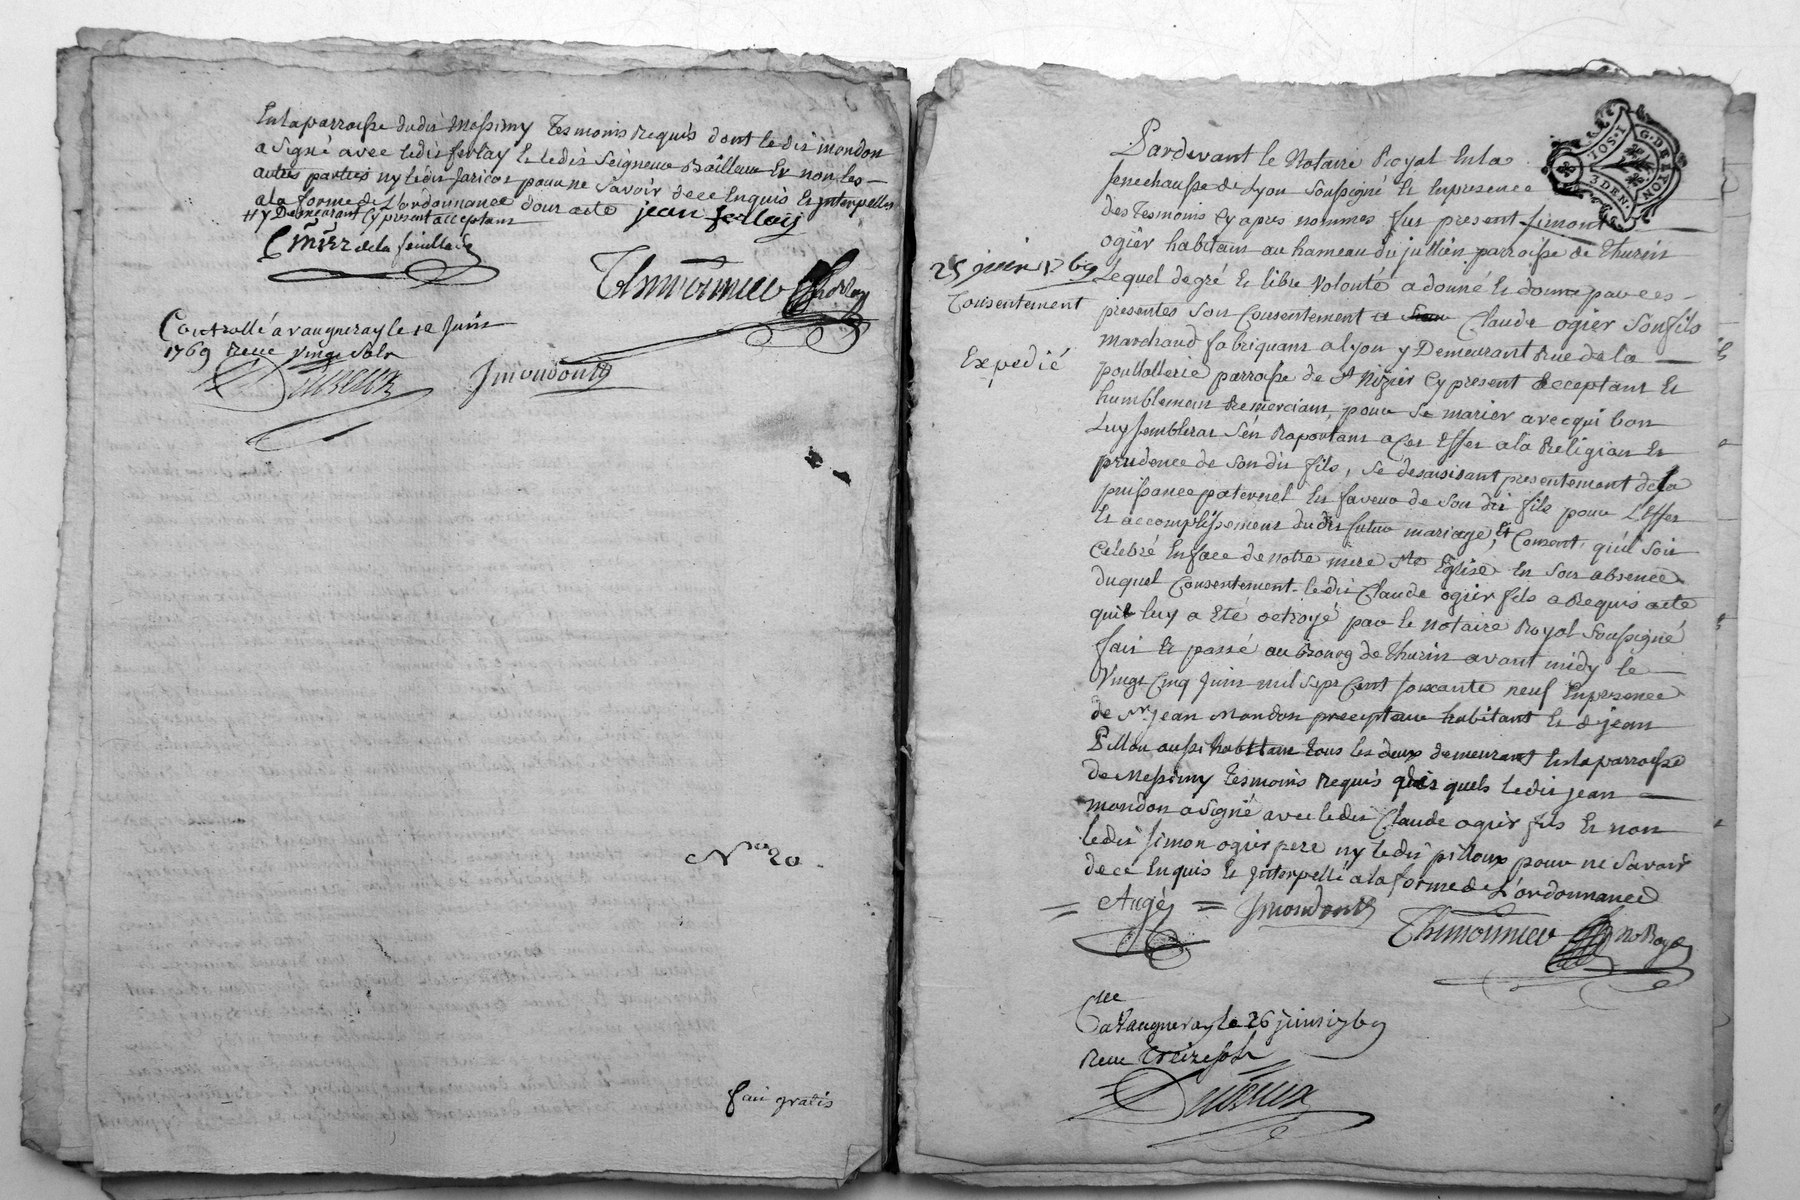 En la parroisse dudit Messimy tesmoins requis dont ledit mondon
a signé avec ledit ferlay et ledit Seigneur Bailleur et non les
autres parties ny ledit pour ne Savoir de ce Enquis et Interpellés
a la forme de L'ordonnance dont acte jean ferlay
y Demeurant cy present acceptant
de la feuillade
Thimonnier
Controllé a vaugneray le 12 Juin
1769 Receu vingt Sols
Jmondon
Nre 20
fait gratis
G. DE LYON
3 DEN.
Pardevant le Notaire Royal En la
senechaussé de Lyon soussigné Et En presence
des Tesmoins Cy apres nommés fut present simon
ogier habitant au hameau du jullin parroisse de Thurin
25 juin 1769
Lequel de gré Et libre Volonté a donné Et donne par ces
Consentement
presentes Son Consentement a Claude ogier Son fils
marchand fabriquant a lyon y Demeurant Rue de la
Expedié
poullallerie parroisse de St Nizier Cy present acceptant Et
humblement Remerciant, pour Se marier avec qui bon
Luy semblerat S'en Raportant a Cet Effet a la Religion Et
prudence de Son dit fils, Se désaisisant presentement de la
puissance paternel En faveur de Son dit fils pour L'Effet
Et accomplissement dudit futur mariage, Et Consent, qu'il Soit
Celebré En face de notre mere Ste Eglise En Son absence
duquel Consentement ledit Claude ogier fils a Requis acte
quil luy a Eté octroyé par le notaire Royal Soussigné
fait Et passé au Bourg de Thurin avant midy le
Vingt Cinq Juin mil Sept Cent soixante neuf En presence
de Sr. jean Mondon precepteur habitant Et de jean
Pillou aussi habitant tous les deux demeurant En la parroisse
de Messimy Tesmoins Requis quels ledit jean
mondon a Signé avec ledit Claude ogier fils Et non
ledit simon ogier pere ny ledit pilloux pour ne Savoir
de ce Enquis Et Interpellé a la forme de L'ordonnance
= Augé = Jmondon Thimonnier No Roya
Clle
a Vaugneray le 26 juin 1769
Receu treize sols